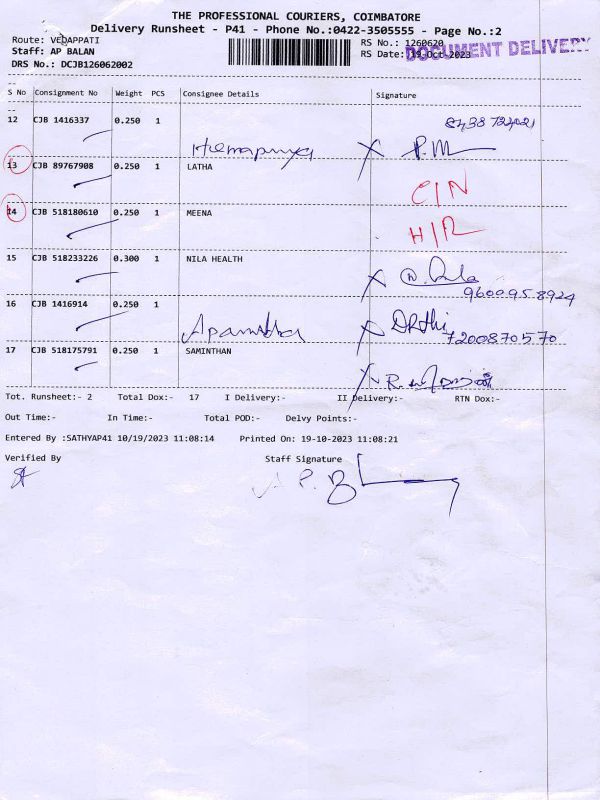 THE PROFESSIONAL COURIERS, COIMBATORE
Delivery Runsheet - P41 - Phone No.:0422-3505555 - Page No.:2
Route: VEDAPPATI
RS No.: 1260620
DOCUMENT DELIVERY
Staff: AP BALAN
RS Date: 19-Oct-2023
DRS No.: DCJB126062002
S No Consignment No Weight PCS Consignee Details Signature
12 CJB 1416337 0.250 1
Hemapriya X P.M
13 CJB 89767908 0.250 1 LATHA
C/N
14 CJB 518180610 0.250 1 MEENA
H/R
15 CJB 518233226 0.300 1 NILA HEALTH
X
9600958924
16 CJB 1416914 0.250 1
X
7200870570
17 CJB 518175791 0.250 1 SAMINTHAN
X
Tot. Runsheet:- 2 Total Dox:- 17 I Delivery:- II Delivery:- RTN Dox:-
Out Time:- In Time:- Total POD:- Delvy Points:-
Entered By :SATHYAP41 10/19/2023 11:08:14 Printed On: 19-10-2023 11:08:21
Verified By Staff Signature